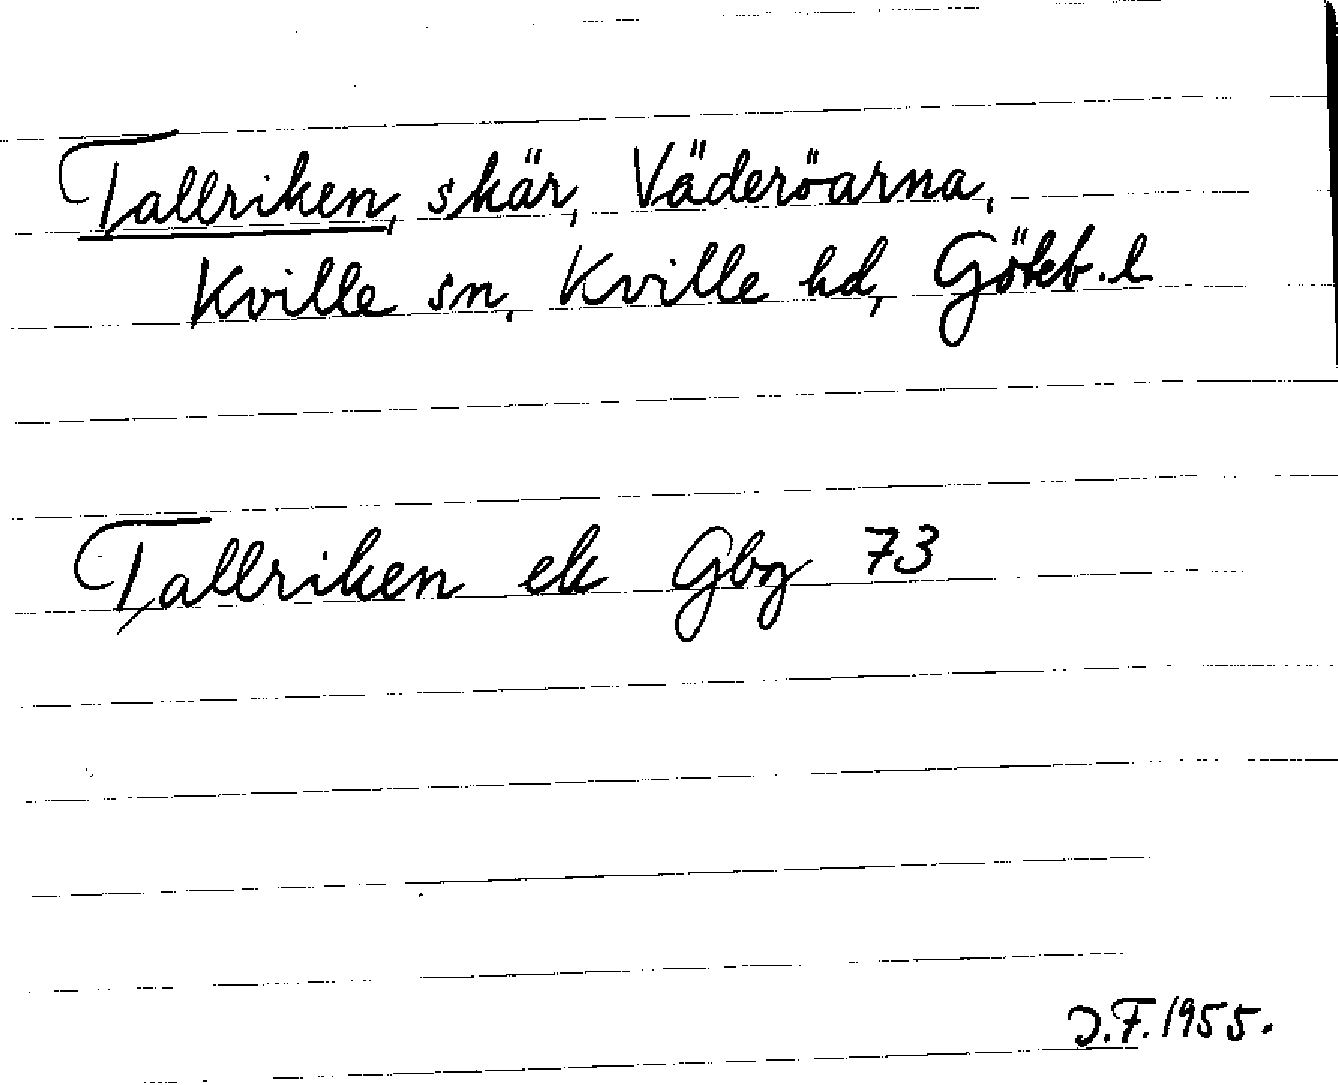 Tallriken, skär, Väderöarna,
Kville sn, Kville hd, Göteb. l
Tallriken ek Gbg 73
J.F. 1955.